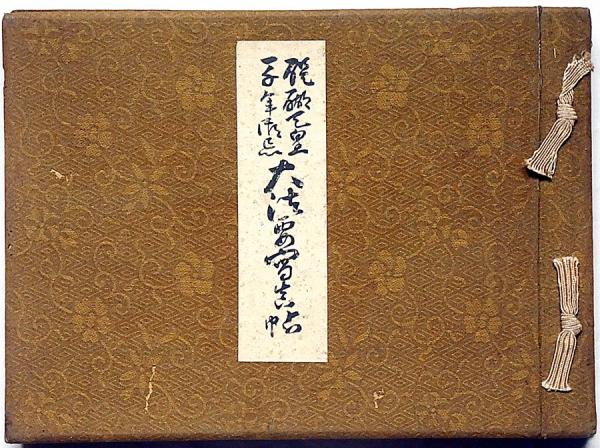 醍醐天皇
一千年御忌
大法要写真帖